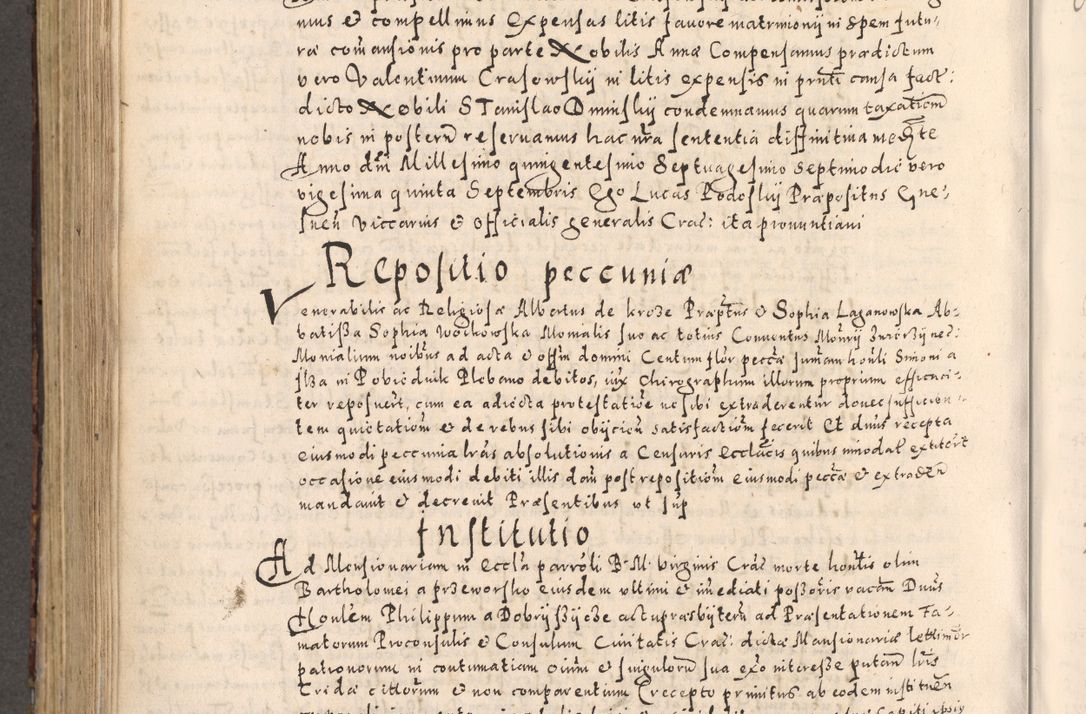 mus et compellimus Expensas litis favore matrimonij in spem futu-
ræ comansionis pro parte Nobilis Annæ Compensamus prædictum
vero Valentinum Crasowskij in litis expensis in pnti causa fact:
dicto Nobili Stanislao Ominskij condemnamus quarum taxationem
nobis in posterum reservamus hac nra sententia diffinitiva mediante
Anno dni Millesimo quingentesimo Septuagesimo Septimo die vero
vigesima quinta Septembris Ego Lucas Podoskij Præpositus Gne-
snen Viccarius et Officialis generalis Crac: ita pronuntiavi
Repositio peccuniæ
Venerabilis ac Religiosæ Albertus de kroze Præptus et Sophia Laganowska Ab-
batissa Sophia Wockowska Monialis suo ac totius Conventus Monrij
Monialium noibus ad acta et offm domini Centum flor pecciæ summam honli Simoni a
in Pobiednik Plebano debitos, iux Chirographum illorum proprium efficaci-
ter reposuert, cum ea adiecta protestatioe ne sibi extraderentur donec sufficien-
tem quietationem et de rebus sibi obijciem satisfactionem fecerit Et dnus recepta
eiusmodi peccunia lras absolutionis a Censuris ecclacis quibus innodat extiterit
occasione eiusmodi debiti illis dari post repositionem eiusmodi peccæ et extradern
mandavit et decrevit Præsentibus ut sup
Institutio
Ad Mansionariam in eccla parrochli B. M. Virginis Crac morte honlis olim
Bartholomei a przeworsko eiusdem ultimi et imediati possoris vacan Dnus
Honlem Philippum a Dobrijssijcze actu presbijterum ad Præsentationem Fa-
matorum Proconsulis et Consulum Civitatis Crac: dictæ Mansionariæ lettimor
patronorum in contumatiam oium et singulorum sua exo interesse putan lris
Cridæ citatorum et non comparentium recepto primitus ab eodem instituen